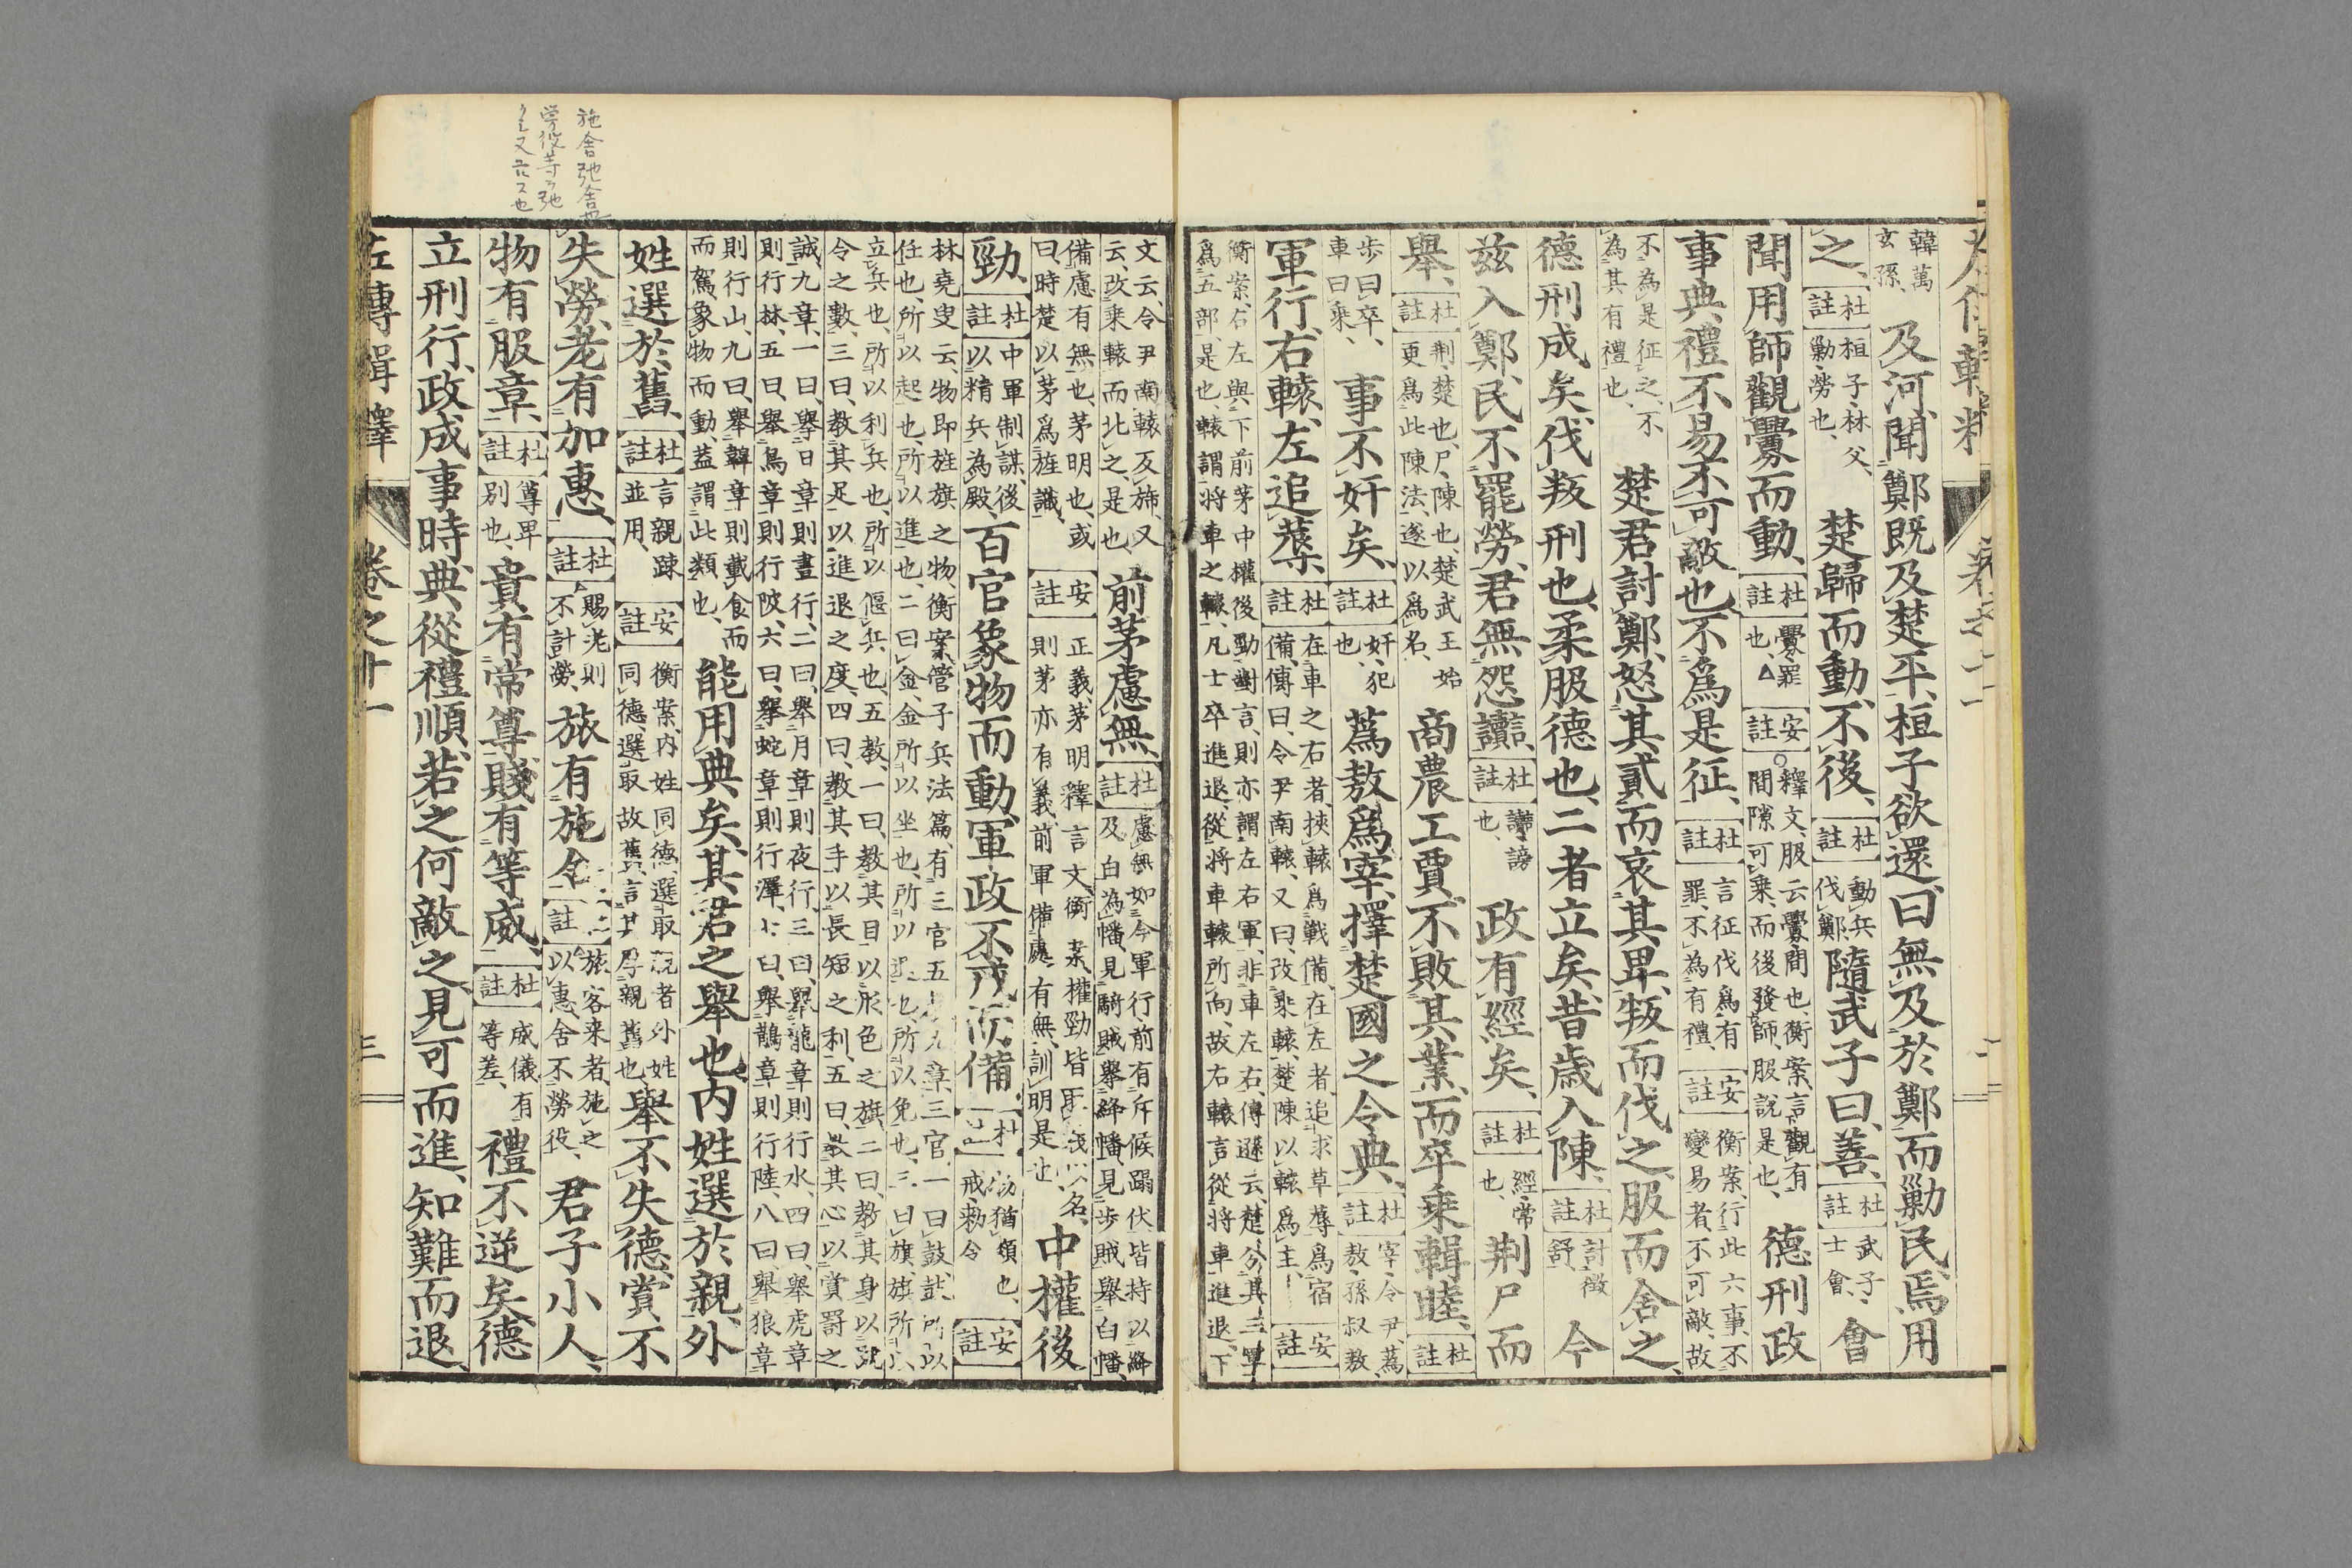 韓萬玄孫、及河、聞鄭既及楚平、桓子欲還、曰、無及於鄭、而勦民、焉用
之、杜註桓子、林父、勦、勞也、楚歸而動、不後、杜註動兵伐鄭隨武子曰、善、杜註武子、士會、會
聞用師觀釁而動、杜註釁、罪也、安註釋文、服云、釁、間也、衡案、言觀有間隙可乘、而後發師、服說是也、德刑政
事典禮不易、不可敵也、不爲是征、杜註言征伐爲有罪、不為有禮、安註衡案、行此六事、不變易者、不可敵、故
不為是征之、不為其有禮也、楚君討鄭、怒其貳而哀其卑、叛而伐之、服而舍之、
德刑成矣、伐叛刑也、柔服德也、二者立矣、昔歳入陳、杜註討徵舒今
茲入鄭、民不罷勞、君無怨讟、杜註讟、謗也、政有經矣、杜註經、常也、荆尸而
舉、杜註荆、楚也、尸、陳也、楚武王始更爲此陳法、遂以爲名、商農工賈、不敗其業、而卒乘輯睦、杜註
歩曰卒、車曰乘、事不奸矣、杜註奸、犯也、蔿敖爲宰、擇楚國之令典、杜註宰、令尹、蔿敖、孫叔敖、
軍行、右轅、左追蓐、杜註在車之右者、挾轅爲戰備、在左者、追求草蓐爲宿備、傳曰、令尹南轅、又曰、改乘轅、楚陳以轅爲主、安註
衡案、右左與下前茅中權後勁對言、則亦謂左右軍、非車左右、傳遜云、楚分其三軍爲五部、是也、轅謂將車之轅、凡士卒進退、從將車轅所向、故右轅言從將車進退、下
文云、令尹南轅反旆、又云、改乘轅而北之、是也、前茅慮無、杜註慮無、如今軍行前有斥候蹋伏、皆持以絳及白為幡、見騎賊舉絳幡、見歩賊舉白幡、
備慮有無也、茅、明也、或曰、時楚以茅爲旌識、安註正義、茅明、釋言文、衡案、權勁皆名、則茅亦有義、前軍備慮有無、訓明是也、中權後
勁、杜註中軍制謀、後以精兵為殿、百官象物而動、軍政不戒而備、杜註物、猶類也、戒、勅令安註
林堯叟云、物即旌旗之物、衡案、管子兵法篇、有三官五教九章、三官、一曰鼓、鼓所以任也、所以起也、所以進也、二曰金、金所以坐也、所以退也、所以免也、三曰旗、旗所以
立兵也、所以利兵也、所以偃兵也、五教、一曰、教其目以形色之旗、二曰、教其身以號令之數、三曰、教其足以進退之度、四曰、教其手以長短之利、五曰、教其心以賞罰之
誠、九章、一曰、舉日章則晝行、二曰、舉月章則夜行、三曰、舉龍章則行水、四曰、舉虎章則行林、五曰、舉烏章則行陂、六曰、舉蛇章則行澤、七曰、舉鵲章則行陸、八曰、舉狼章
則行山、九曰、舉韓章則載食而而駕、象物而動、蓋謂此類也、能用典矣、其君之舉也、內姓選於親、外
姓選於舊、杜註言親疎並用、安註衡案、内姓同德、選取説者、外姓同德、選取故舊、言其厚親舊也、舉不失德、賞不
失勞、老有加惠、杜註賜老則不計勞、旅有施舍、杜註旅客來者、施之以惠、舍不勞役、君子小人、
物有服章、杜註尊卑別也、貴有常尊、賤有等威、杜註威儀有等差、禮不逆矣、德
立刑行、政成事時、典從禮順、若之何敵之、見可而進、知難而退、
左傳輯釋 卷之十一 三
施舍弛舍也